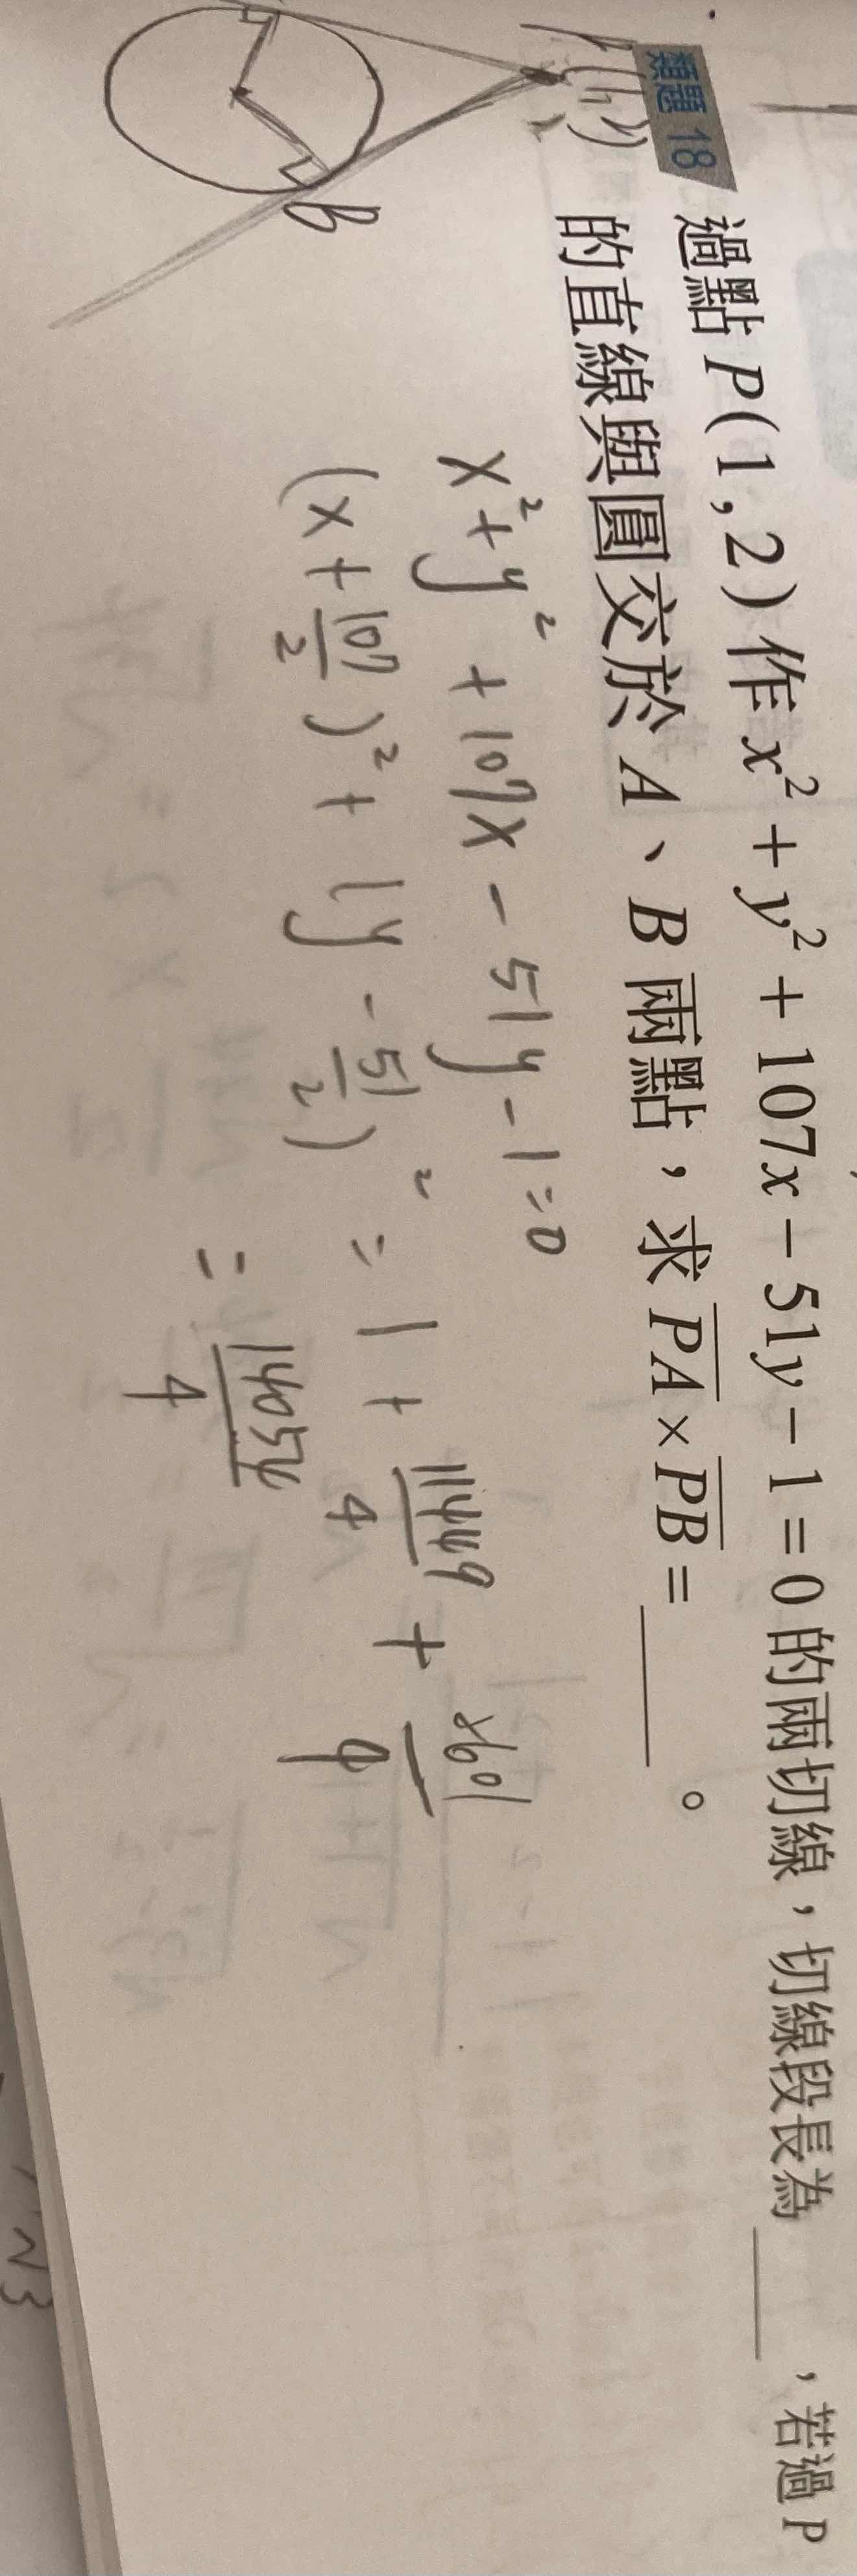 類題 18
過點 P(1,2) 作 x² + y² + 107x − 51y − 1 = 0 的兩切線，切線段長為____，若過 P
的直線與圓交於 A、B 兩點，求 PA × PB = ____。
B
x² + y² + 107x − 51y − 1 = 0
(x + 107/2)² + (y − 51/2)² = 1 + 11449/4 + 2601/4
= 14054/4